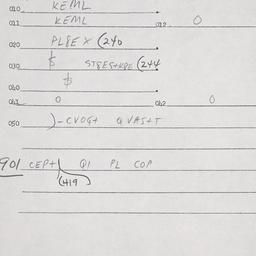 010 KEML
011 KEML 012 0
020 PL8E X (240
030 $ STQES+KDE (244
060 $
061 0 062 0
050 )-CVOG+ QVAS+T
901 CEP+) Q1 PL COP
(419)